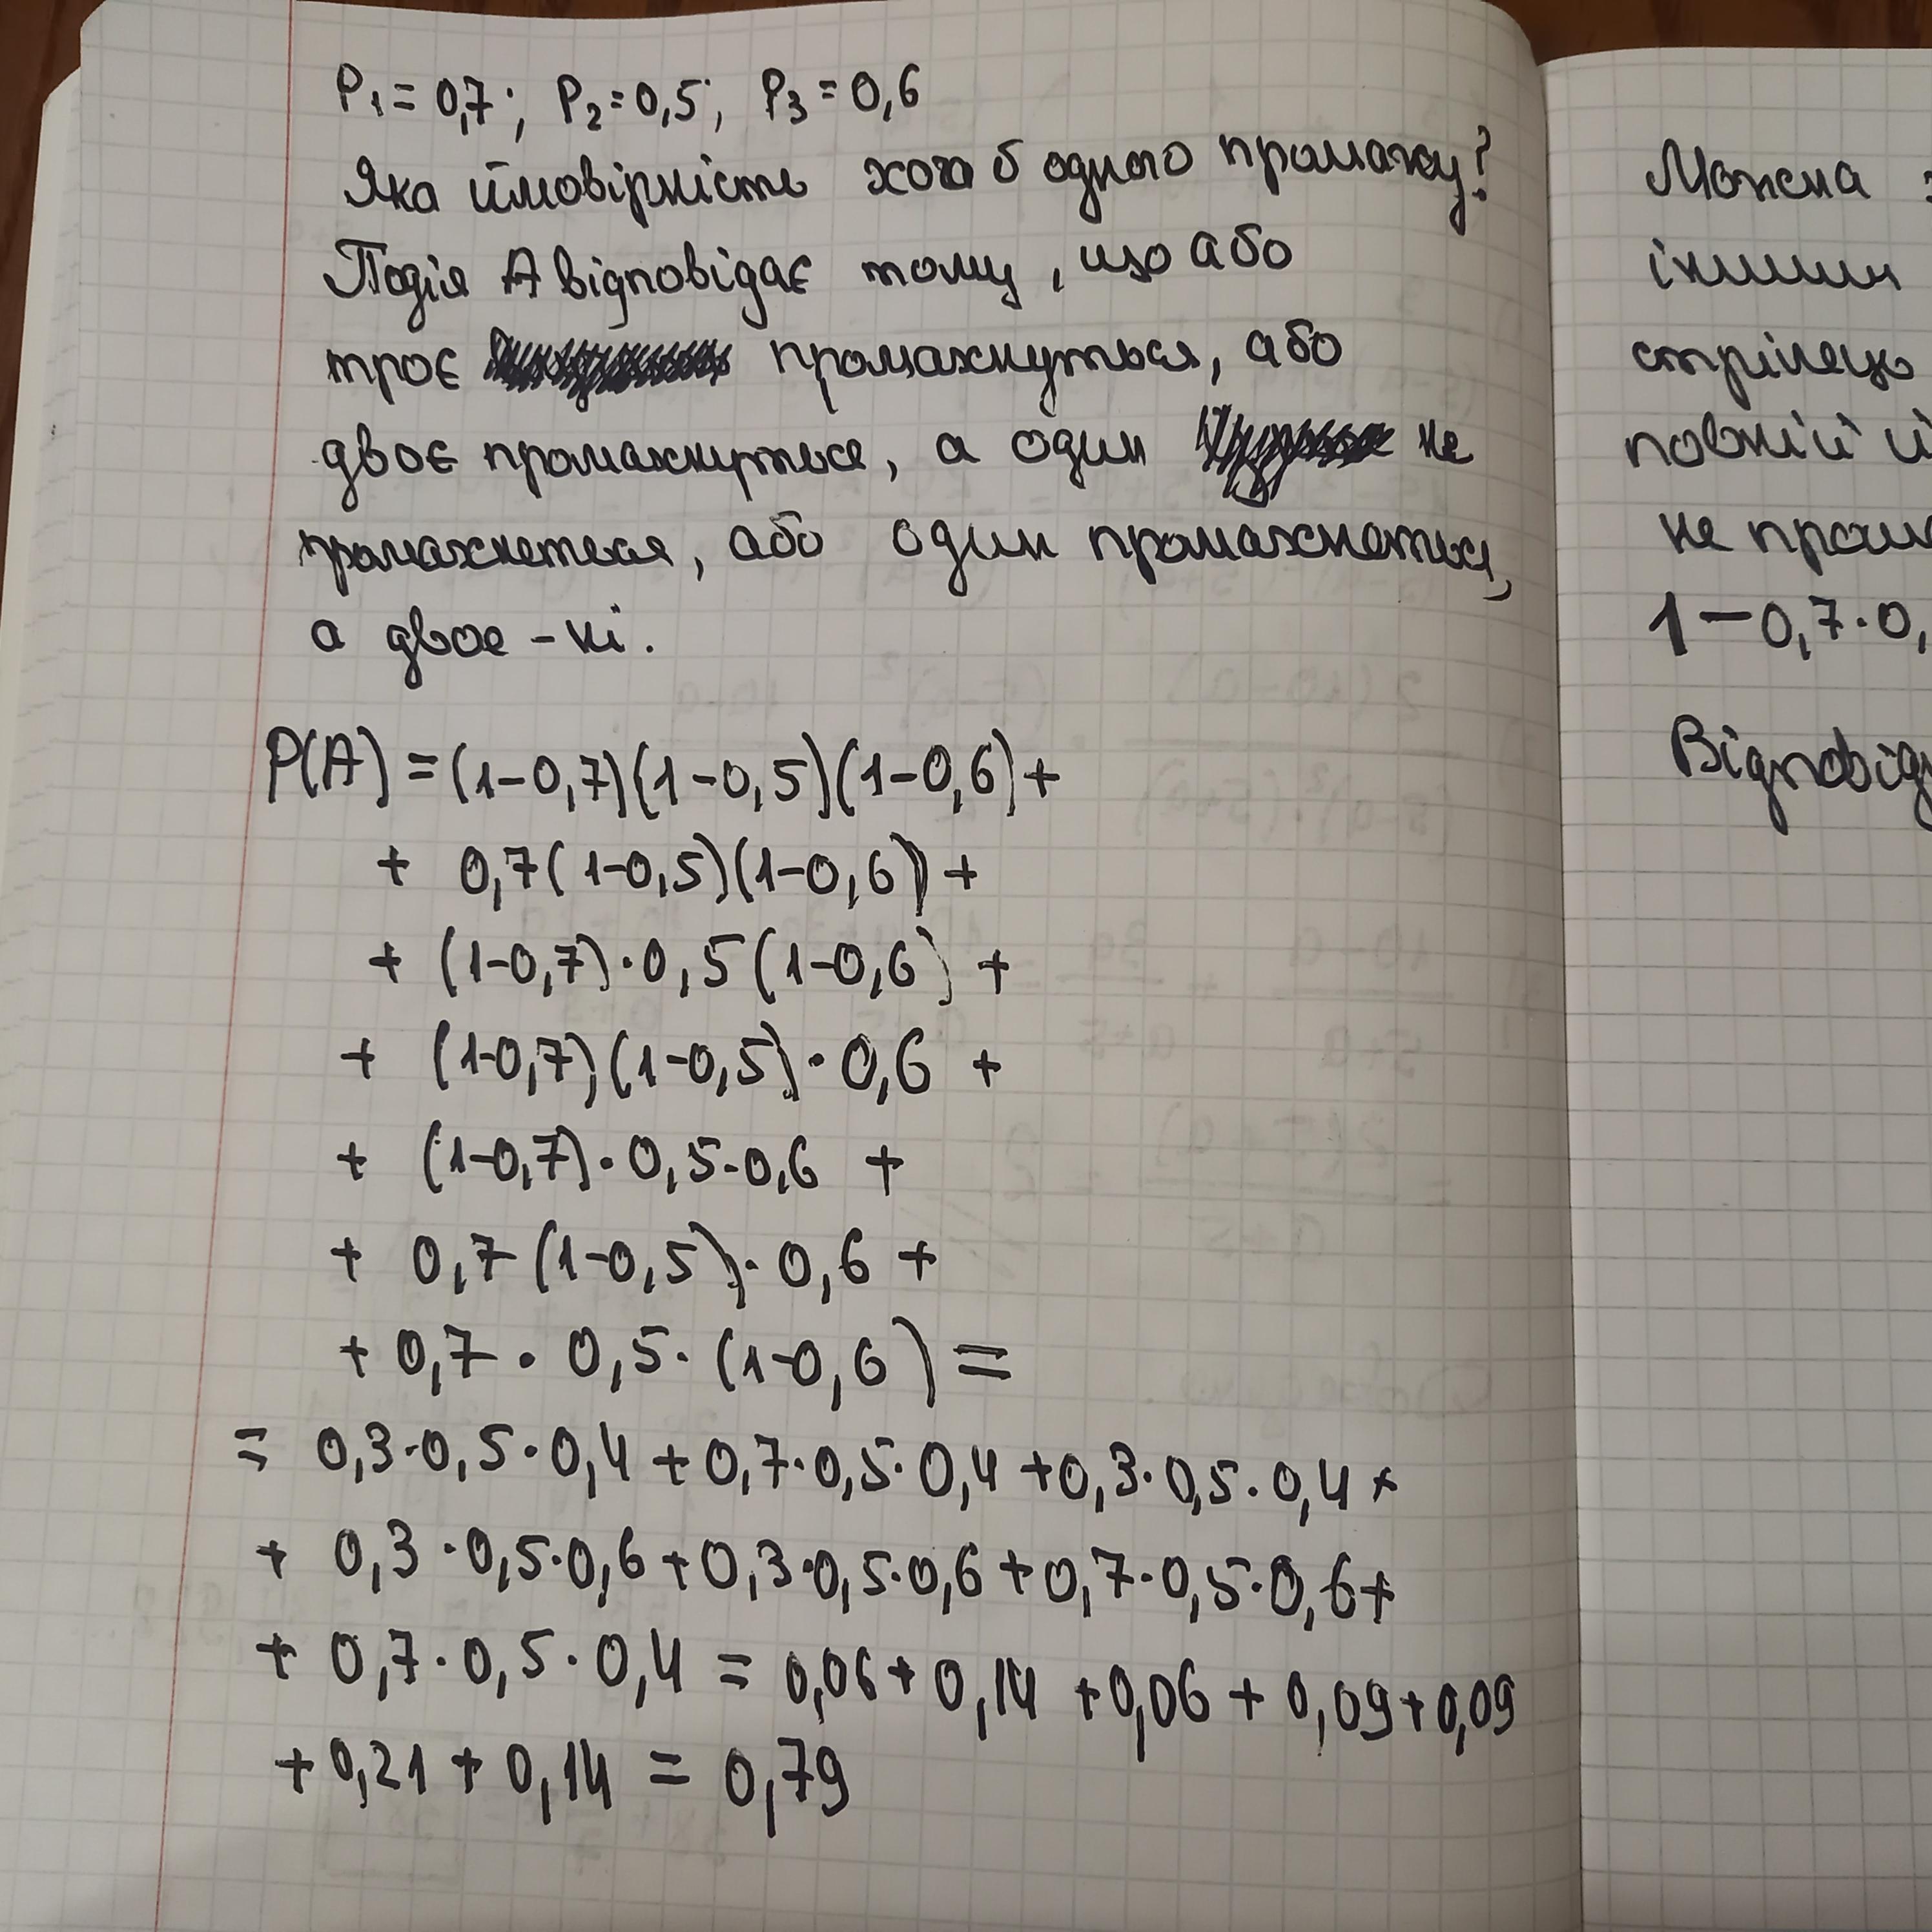 P₁ = 0,7; P₂ = 0,5; P₃ = 0,6
Яка ймовірність хоча б одного промаху?
Подія A відповідає тому, що або
троє промахнуться, або
двоє промахнуться, а один не
промахнеться, або один промахнеться,
а двоє - ні.
P(A) = (1-0,7)(1-0,5)(1-0,6) +
+ 0,7(1-0,5)(1-0,6) +
+ (1-0,7)·0,5(1-0,6) +
+ (1-0,7)(1-0,5)·0,6 +
+ (1-0,7)·0,5·0,6 +
+ 0,7(1-0,5)·0,6 +
+ 0,7·0,5·(1-0,6) =
= 0,3·0,5·0,4 + 0,7·0,5·0,4 + 0,3·0,5·0,4 +
+ 0,3·0,5·0,6 + 0,3·0,5·0,6 + 0,7·0,5·0,6 +
+ 0,7·0,5·0,4 = 0,06 + 0,14 + 0,06 + 0,09 + 0,09
+ 0,21 + 0,14 = 0,79
Можна
іншим
стрілець
повній й
не пром
1 - 0,7·0,
Відповід